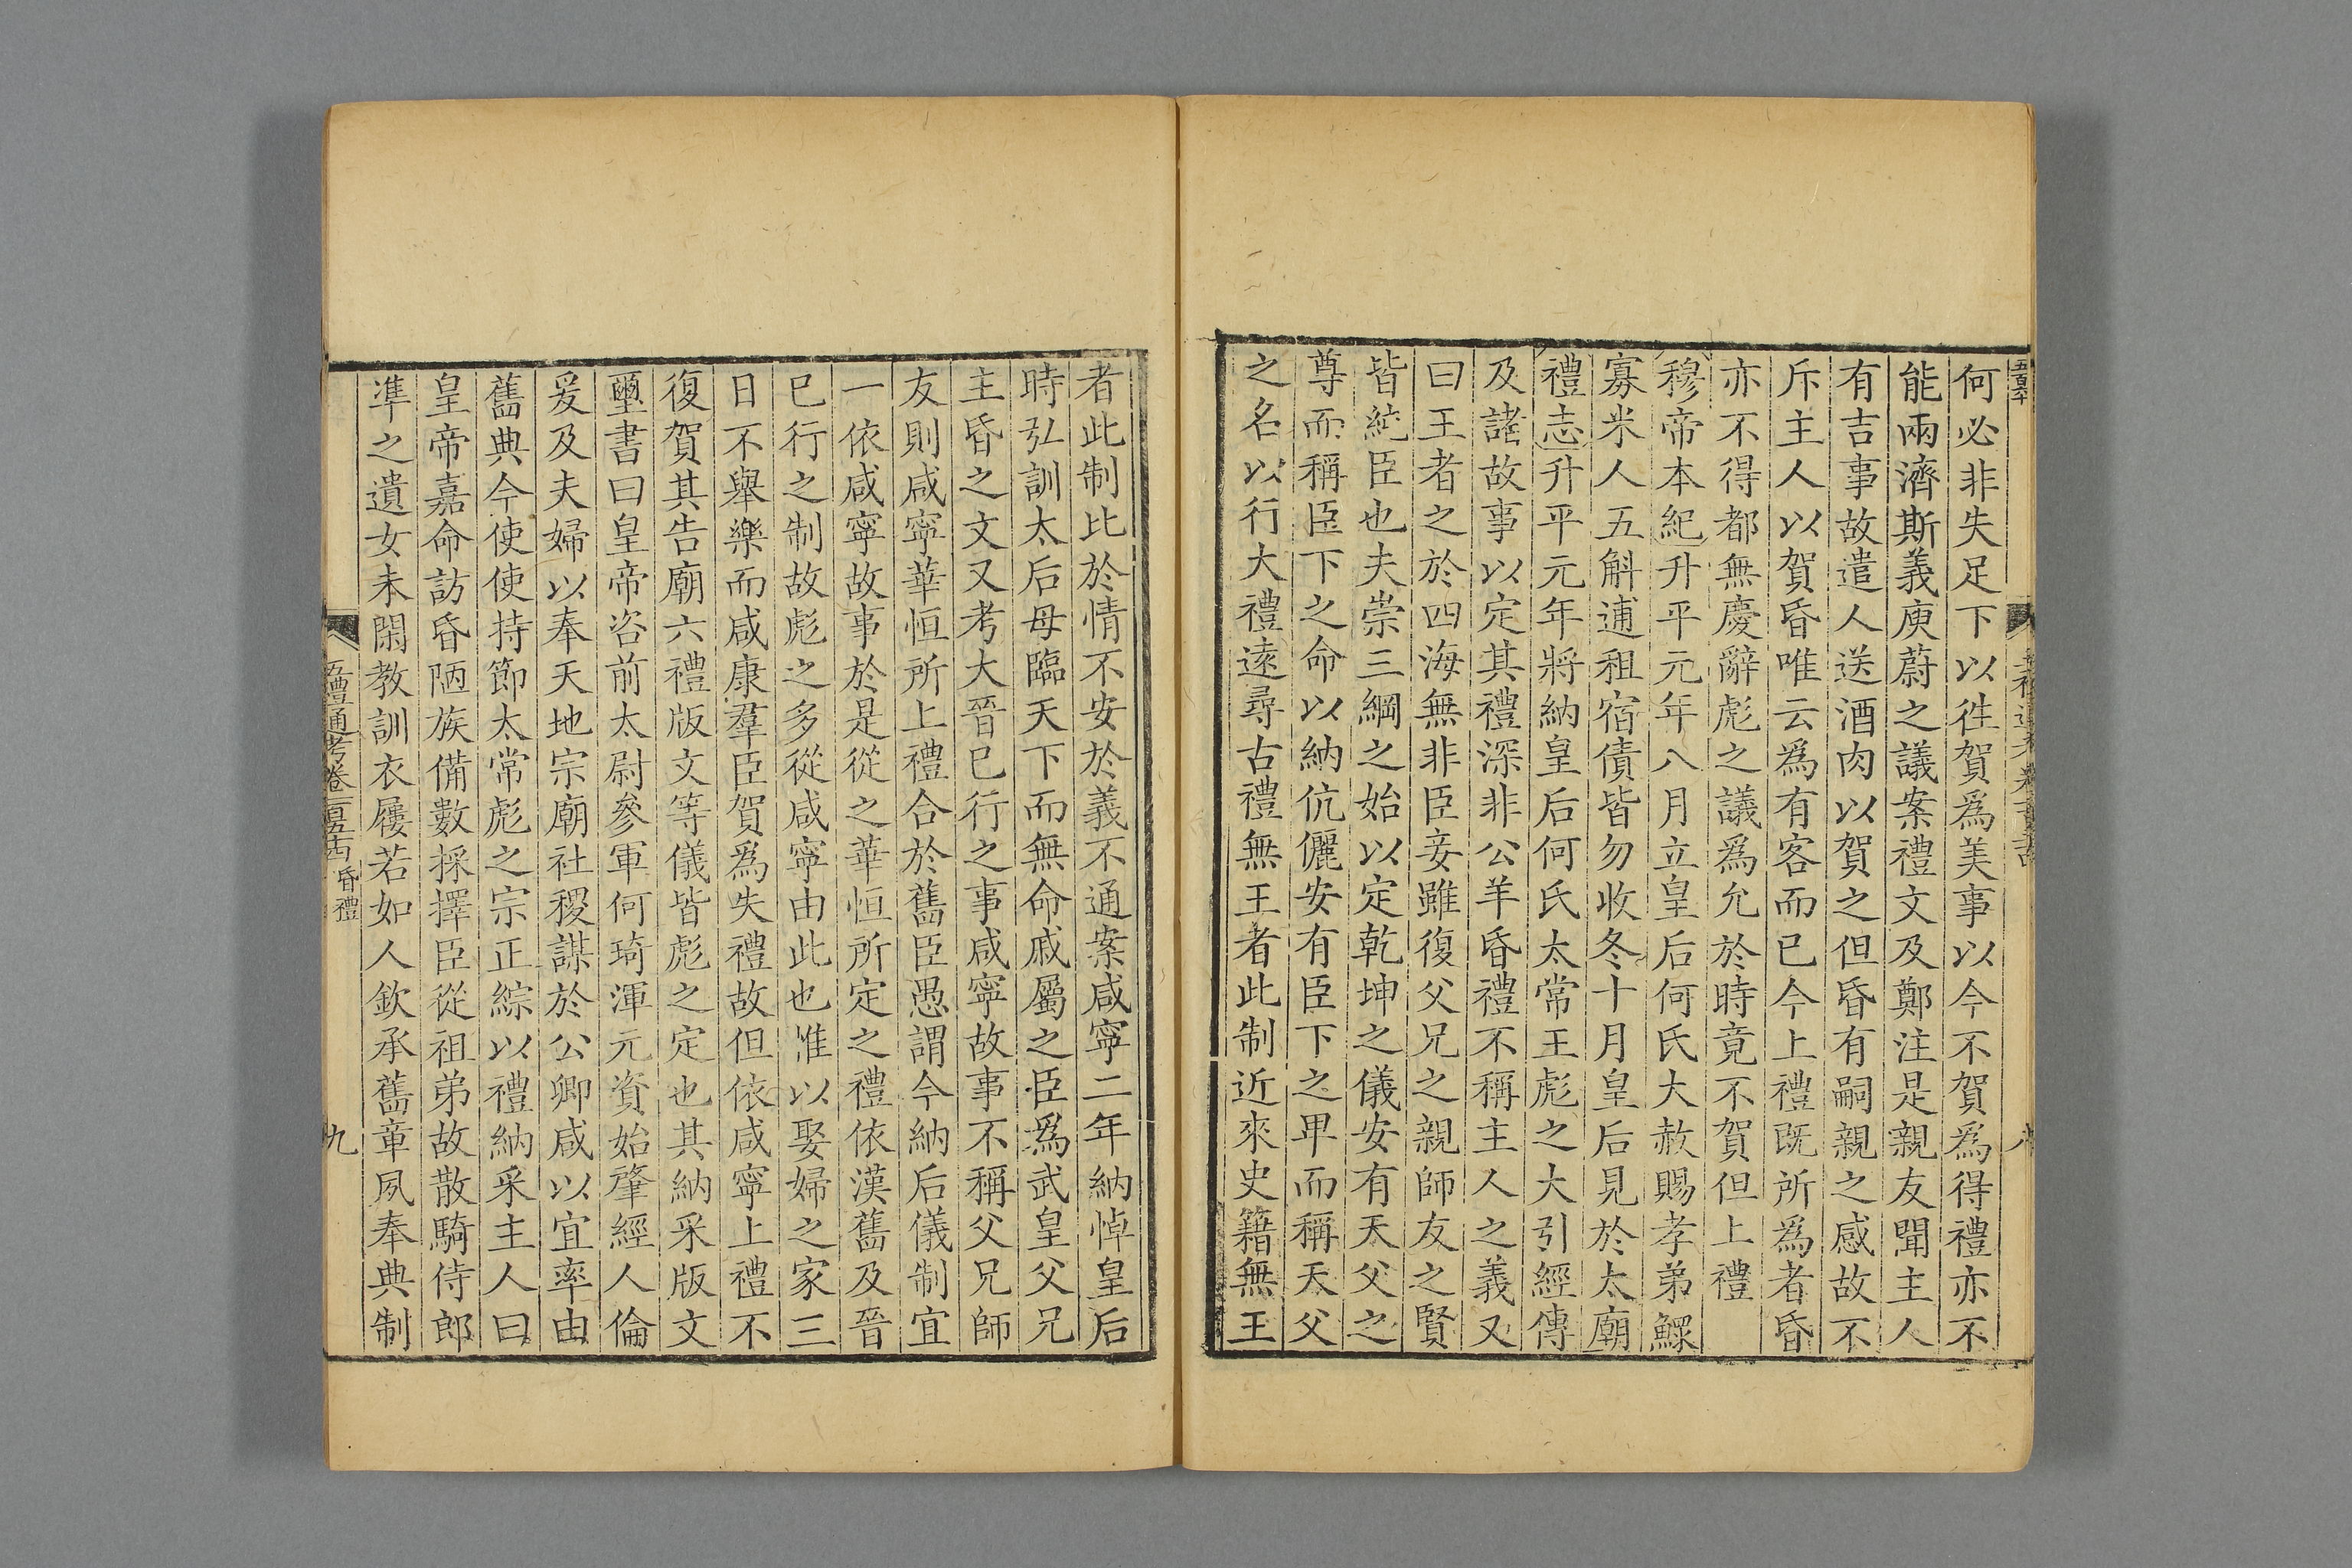 何必非失足下以徃賀爲美事以今不賀爲得禮亦不
能兩濟斯義庾蔚之議案禮文及鄭注是親友聞主人
有吉事故遣人送酒肉以賀之但昏有嗣親之感故不
斥主人以賀昏唯云爲有客而已今上禮既所爲者昏
亦不得都無慶辭彪之議爲允於時竟不賀但上禮
穆帝本紀升平元年八月立皇后何氏大赦賜孝弟鰥
寡米人五斛逋租宿債皆勿收冬十月皇后見於太廟
禮志升平元年將納皇后何氏太常王彪之大引經傳
及諸故事以定其禮深非公羊昏禮不稱主人之義又
曰王者之於四海無非臣妾雖復父兄之親師友之賢
皆純臣也夫崇三綱之始以定乾坤之儀安有天父之
尊而稱臣下之命以納伉儷安有臣下之卑而稱天父
之名以行大禮遠尋古禮無王者此制近來史籍無王
者此制比於情不安於義不通案咸寧二年納悼皇后
時弘訓太后母臨天下而無命戚屬之臣爲武皇父兄
主昏之文又考大晉已行之事咸寧故事不稱父兄師
友則咸寧華恒所上禮合於舊臣愚謂今納后儀制宜
一依咸寧故事於是從之華恒所定之禮依漢舊及晉
已行之制故彪之多從咸寧由此也惟以娶婦之家三
日不舉樂而咸康羣臣賀爲失禮故但依咸寧上禮不
復賀其告廟六禮版文等儀皆彪之定也其納采版文
璽書曰皇帝咨前太尉參軍何琦渾元資始肇經人倫
爰及夫婦以奉天地宗廟社稷謀於公卿咸以宜率由
舊典今使使持節太常彪之宗正綜以禮納采主人曰
皇帝嘉命訪昏陋族備數採擇臣從祖弟故散騎侍郎
準之遺女未閑教訓衣履若如人欽承舊章夙奉典制
五禮通考卷一百五十四 昏禮 九